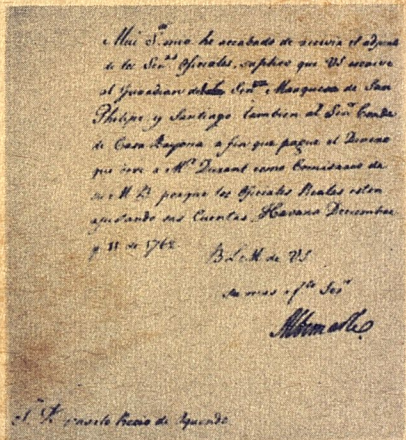 Mui S.ᵒʳ mio he acabado de recivir el adjunto
de los Señ.ˢ Oficiales, suplico que VS escrive
al Guardian de la Señ.ʳᵃ Marquesa de San
Phelipe y Santiago tambien al Señ.ʳ Conde
de Casa Bayona a fin que pague el Dinero
que deve a M.ʳ Durant como Comissario de
su M. B. porque los Oficiales Reales esten
ajustando sus Cuentas Havana Decembre
de 1762
B L M de VS
su mas Ser.ʳ
Albemarle
S.ʳ D.ⁿ Recio de Oquendo